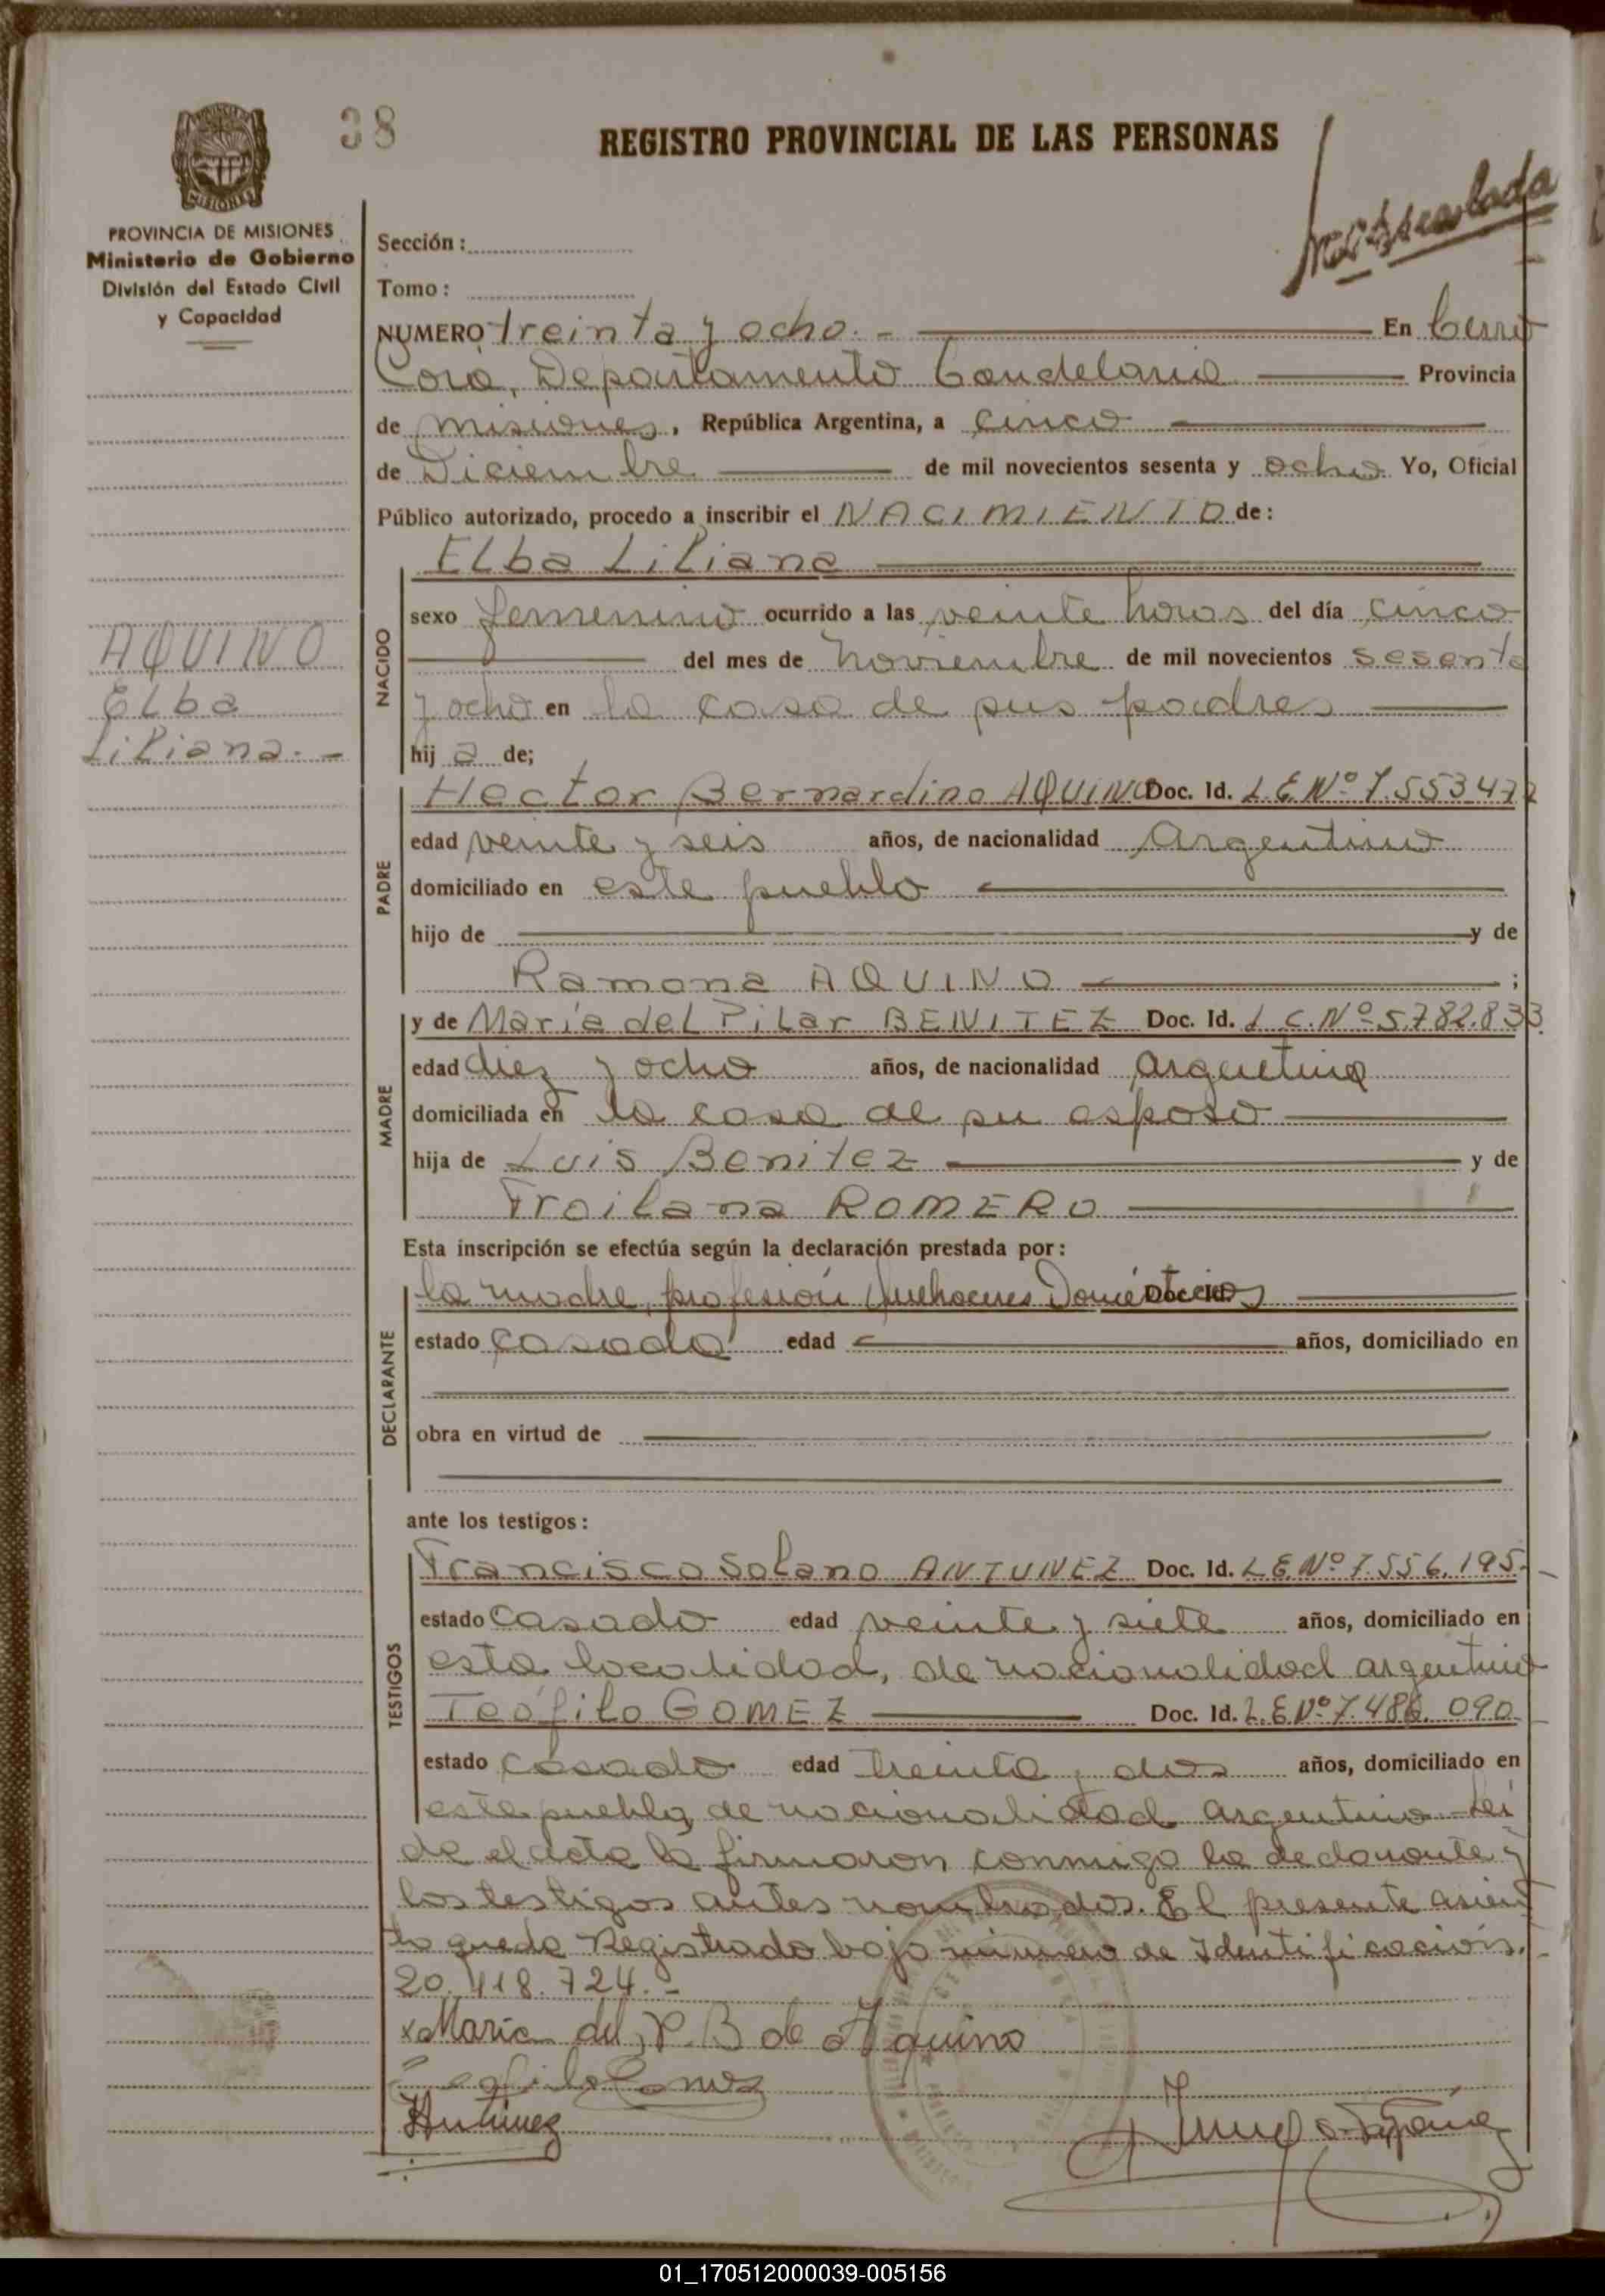 38
REGISTRO PROVINCIAL DE LAS PERSONAS
PROVINCIA DE MISIONES
Ministerio de Gobierno
División del Estado Civil
y Capacidad
Sección :
Tomo :
NUMERO treinta y ocho. - En Cerro
Corá, Departamento Candelaria Provincia
de Misiones, República Argentina, a cinco
de Diciembre de mil novecientos sesenta y ocho Yo, Oficial
Público autorizado, procedo a inscribir el NACIMIENTO de :
ELba LiLiana
NACIDO
sexo femenino ocurrido a las veinte horas del día cinco
del mes de Noviembre de mil novecientos sesenta
y ocho en la casa de sus padres
hij a de;
AQUINO
ELba
LiLiana. -
PADRE
Hector Bernardino AQUINO Doc. Id. L.E.Nº 7.553.472
edad veinte y seis años, de nacionalidad Argentino
domiciliado en este pueblo
hijo de y de
Ramona AQUINO ;
MADRE
y de María del PiLar BENITEZ Doc. Id. L.C.Nº 5.782.833
edad diez y ocho años, de nacionalidad argentina
domiciliada en la casa de su esposo
hija de Luis Benitez y de
TroiLana ROMERO
Esta inscripción se efectúa según la declaración prestada por :
DECLARANTE
la madre, profesión Quehaceres Domésticos Doc. Id.
estado casada edad años, domiciliado en
obra en virtud de
ante los testigos :
TESTIGOS
Francisco SoLano ANTUNEZ Doc. Id. L.E.Nº 7.556.195.-
estado casado edad veinte y siete años, domiciliado en
esta localidad, de nacionalidad argentino
TeófiLo GOMEZ Doc. Id. L.E.Nº 7.486.090
estado casado edad treinta y dos años, domiciliado en
este pueblo, de nacionalidad argentino - Lei
da el acta la firmaron conmigo la declarante y
los testigos antes nombrados. El presente asien
to queda Registrado bajo número de Identificación.
20.418.724.-
x María del P. B de Aquino
Antunez
01_170512000039-005156